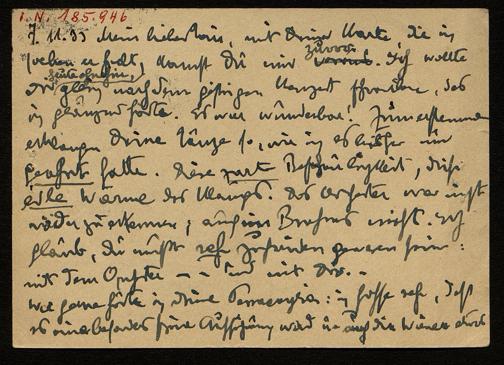 I. N. 185.946
7. 11. 33 Mein lieber, mit Deiner Karte, die ich
soeben erhielt, kamst Du mir zuvor. Ich wollte
Dir gleich nach dem gestrigen Konzert, das
ich hörte. Es war wunderbar! Zum ersten
erklangen Deine Tänze so, wie ich es bisher nur
geahnt hatte. Diese zarte, diese
edle Wärme des Klangs. Das Orchester war nicht
wieder zu erkennen; auch im Brahms nicht. Ich
glaube, Du mußt sehr zufrieden gewesen sein:
mit dem Orchester -- und mit Dir..
Wie gerne hörte ich Deine: ich hoffe sehr, daß
es eine besonders feine Aufführung wird u. auch den Wienern